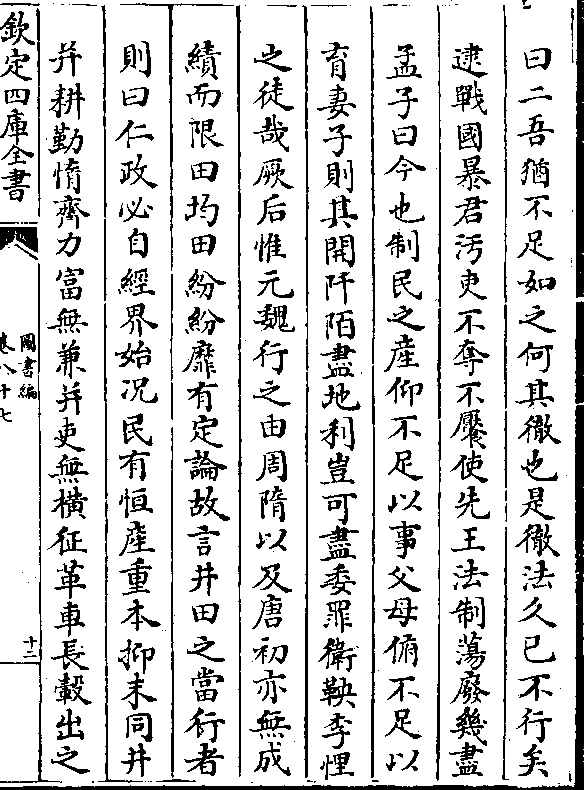 曰二吾猶不足如之何其徹也是徹法久已不行矣
逮戰國暴君汚吏不奪不饜使先王法制蕩廢幾盡
孟子曰今也制民之產仰不足以事父母俯不足以
育妻子則其開阡陌盡地利豈可盡委罪衛鞅李悝
之徒哉厥后惟元魏行之由周隋以及唐初亦無成
績而限田均田紛紛靡有定論故言井田之當行者
則曰仁政必自經界始况民有恒産重本抑末同井
并耕勤惰齊力富無兼并吏無横征革車長轂出之
欽定四庫全書
圖書編
卷八十七
十二